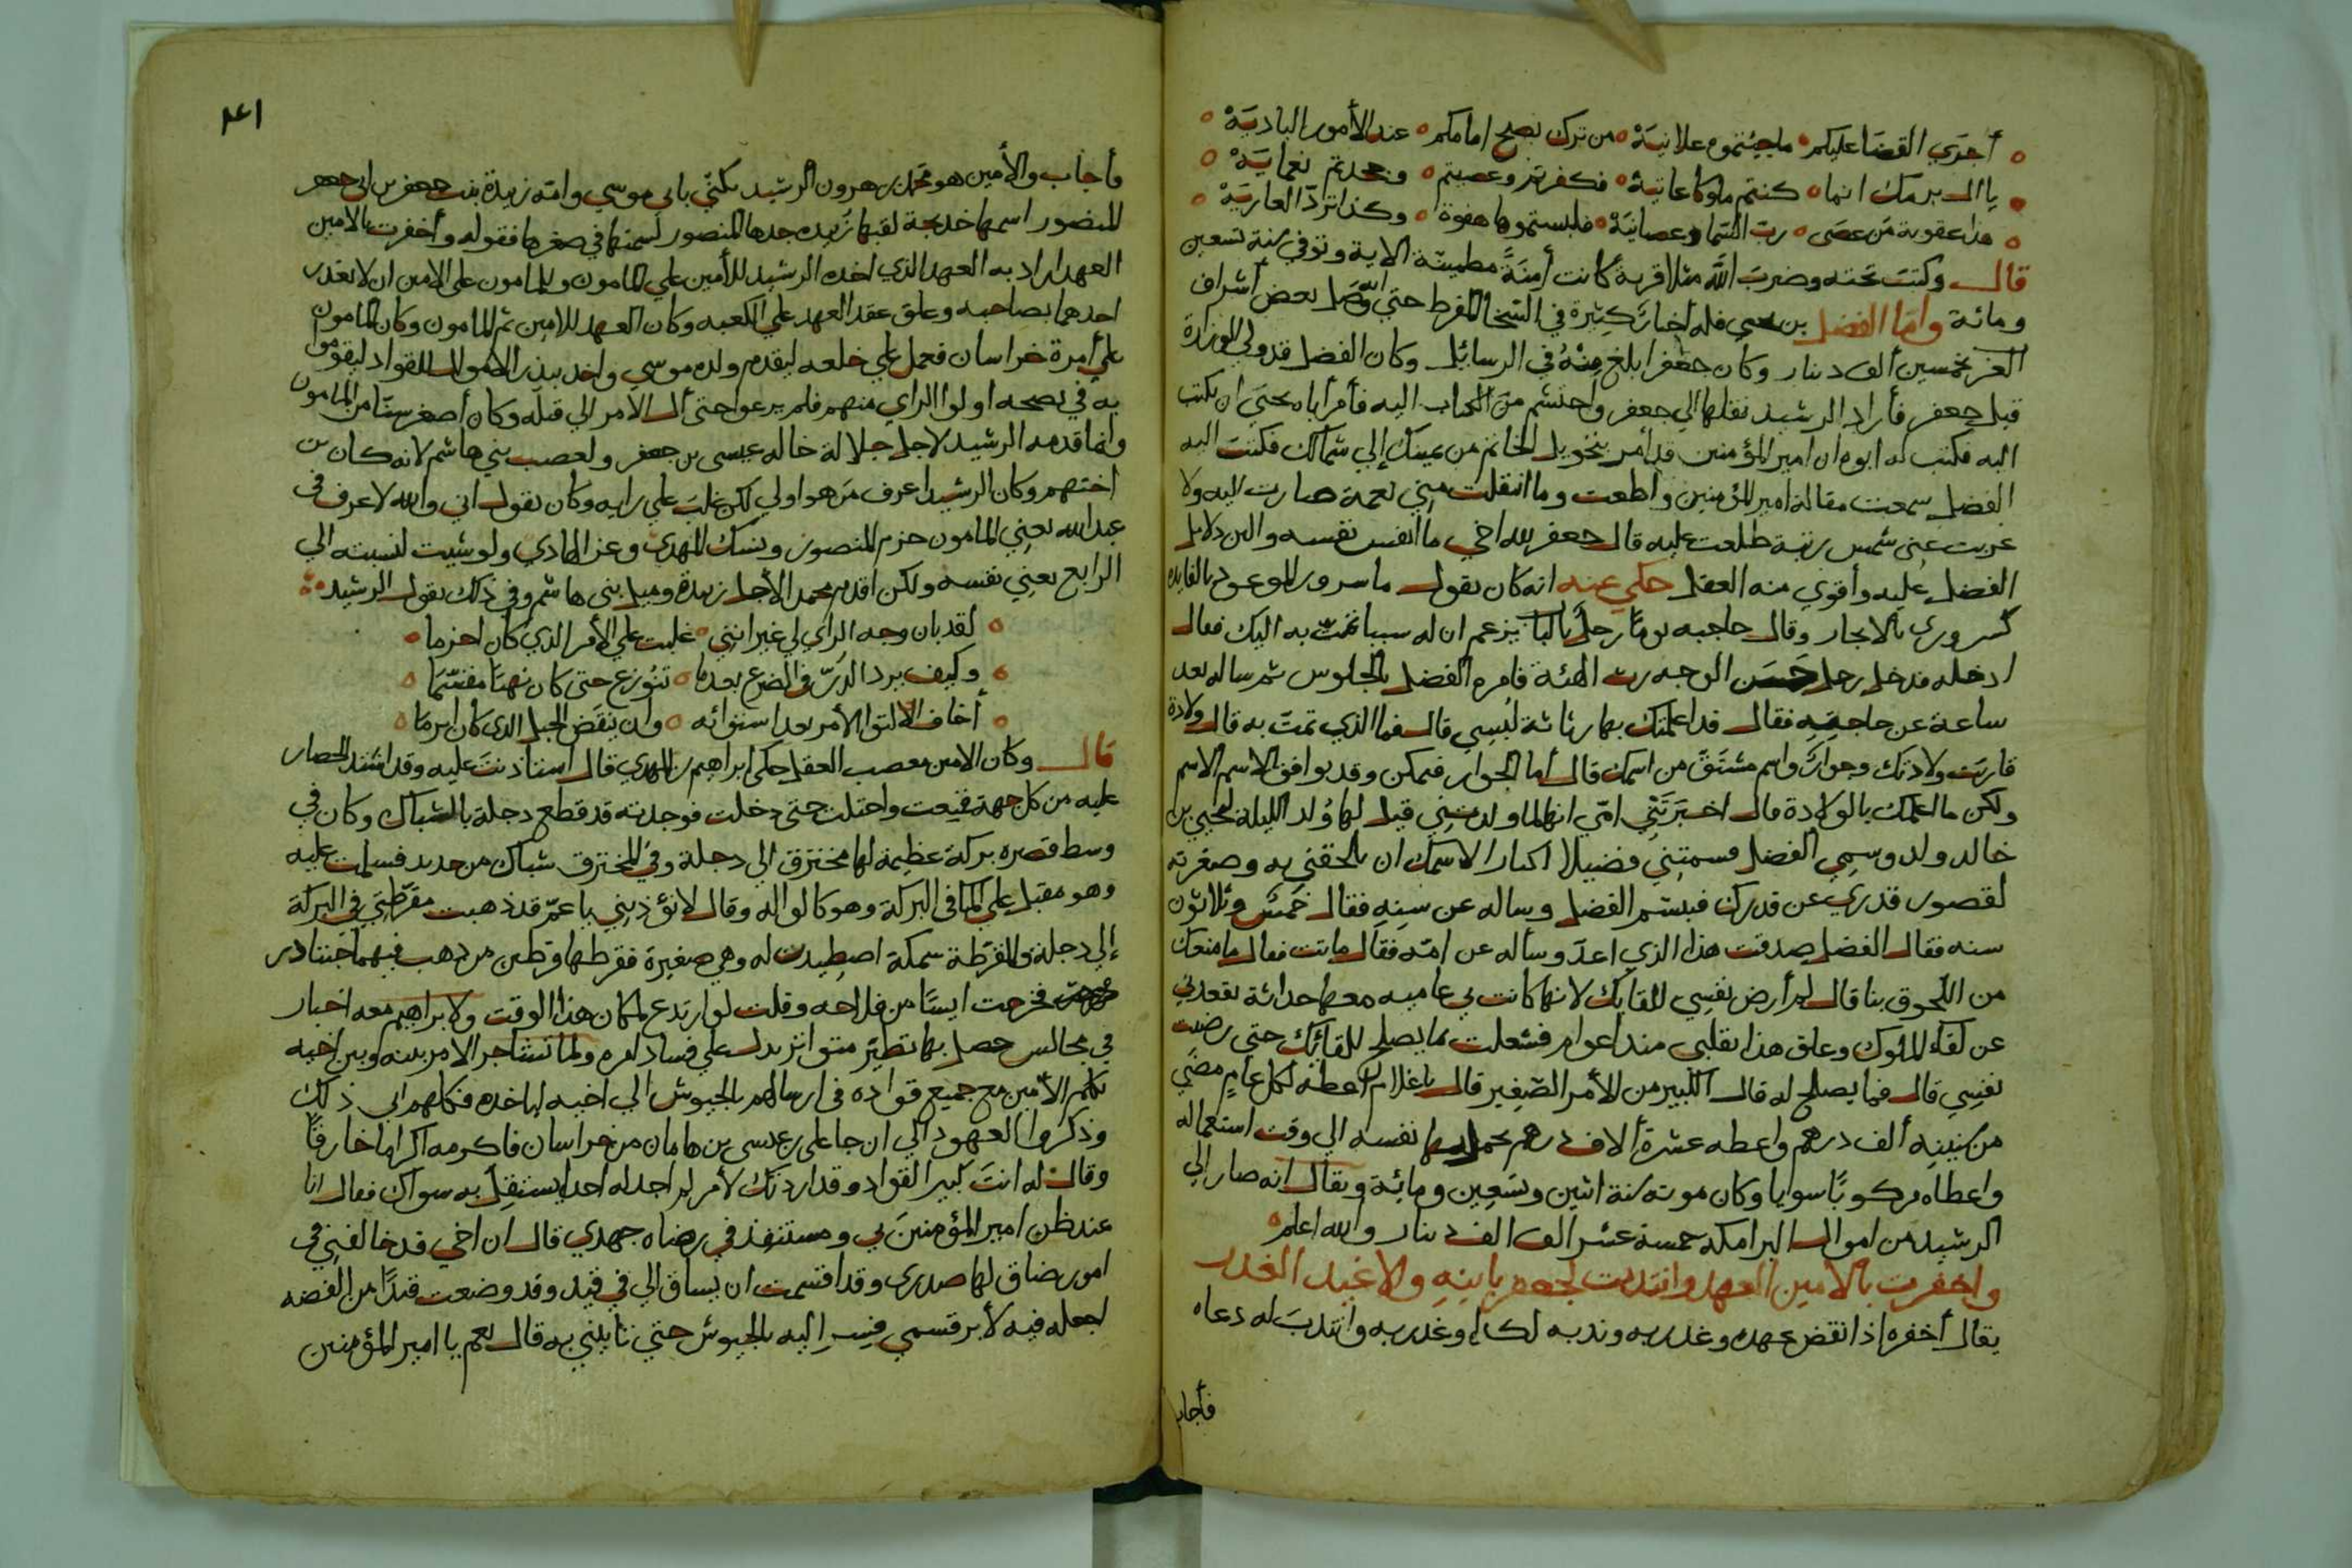 أجرَي القضَا عليكم ما جيئتموه علانيَهْ من ترك نصح امامكم عند الأمور الباديَهْ
يا ال برمك انما كنتم ملوكا عاتيهْ فكفرتم وعصيتم وجحدتم نعمايَهْ
هذا عقوبة مَن عصَى ربّ السّما وعصانيَهْ فلبستموها هفوة وكذا تردّ العاريَهْ
قال وكتبَ تحته وضربَ اللّه مثلا قرية كانت أمنةً مطمينّة الاية وتوفي سنة تسعين
ومائة وأمّا الفضل بن يحيي فله أخبار كثيرة في السّخا المفرط حتي اوصَل بعض أشراف
العز بخمسين ألف دينار وكان جعفر ابلغ منْهُ في الرسائل وكان الفضل قد ولي الوزارة
قبل جعفر فأراد الرشيد نقلها الي جعفر واحتشم من الكتاب اليه فأمر أباه يحيَي ان يكتب
اليه فكتب له ابوه ان امير المؤمنين قد أمر بتحويل الخاتم من يمينك إلي شمالك فكتبَ اليه
الفضل سمعت مقالة امير المؤمنين وأطعت وما انتقلت منّي نعمة صارت اليه ولا
غربت عنّي شمس رتبة طلعت عليه قال جعفر لله اخي ما انفس نفسه وابين دلايل
الفضل عليه وأقوي منه العقل حكي عنه انه كان يقول ما سرور الموعود بالفايدة
كسروري بالانجاز وقال حاجبه يومًا رجلٌ بالباب يزعم ان له سببا يمتّ به اليك فقال
ادخله فدخل رجل حَسَن الوجه رث الهئة فامره الفضل بالجلوس ثم ساله بعد
ساعة عن حاجته فقال قد اعلمتك بها رثاثة لبسي قال فما الذي تمتّ به قال ولادة
قاربَت ولادتك وجوارٌ واسم مشتَقّ من اسمك قال أما الجوار فيمكن وقد يوافق الاسم الاسم
ولكن ما اعلمك بالولادة قال اخبَرَتْني امّي انها لما ولدتني قيل لها وُلد الليلة ليحيي بن
خالد ولد وسمي الفضل فسمتني فضيلا اكبارا لاسمك ان تلحقني به وصغرته
لقصور قدري عن قدرك فتبسّم الفضل وساله عن سنه فقال خمسٌ وثلاثون
سنه فقال الفضل صدقت هذا الذي اعدّ وسأله عن امّه فقال ماتت فقال ما منعك
من اللّحوق بنا قال لم أرض نفسي للقايك لانها كانت في عاميه معها حداثة تقعدني
عن لقاء الملوك وعلق هذا بقلبي منذ اعوام فشغلت بما يصلح للقائك حتي رضيت
نفسي قال فما يصلح له قال الكبير من الأمر الصّغير قال يا غلام اعطه لكل عامٍ مضَي
من سنينه ألف درهم واعطه عشرة ألاف درهم يجمل بها نفسه الي وقت استعماله
واعطاه مركوبًا سوايا وكان موته سنة اثنين وتسَعِين ومائة ويقال انه صار الي
الرشيد من اموال البرامكه خمسة عشر الف الف دينار والله اعلم
واخفرت بالامين العهد وانتدبت لجعفر بابنه والاعبد الغدر
يقال أخفره اذا نقض عهده وغدر به وندبه لكذا وغدر به وانتدبَ له دعاه
فأجاب
١٤١
فأجاب والأمين هو محمّد بن هرون الرشيد يكنّي بابي موسي وامّه زبيدة بنت جعفر بن ابي جعفر
المنصور اسمها خديجة لقبها زبيده جدها المنصور لسمنها في صغرها فقوله وأخفرت بالامين
العهد اراد به العهد الذي اخده الرشيد للأمين علي المامون وللمامون علي الامين ان لا يغدر
احدهما بصاحبه وعلق عقد العهد علي الكعبه وكان العهد للامين ثم للمامون وكان المامون
علي أمرة خراسان فعمل علي خلعه ليقدم ولده موسي واخد يبذر الاموال للقواد ليقوموا
به في نصحه اولوا الراي منهم فلم يرعوا حتي أل الأمر الي قتله وكان أصغر سنّا من المامون
وانما قدمه الرشيد لاجل جلالة خاله عيسى بن جعفر ولعصب بني هاشم لانه كان من
اختهم وكان الرشيد اعرف مَن هو اولي لكن غلبَ علي رايه وكان يقول اني والله لاعرف في
عبد الله يعني المامون حزم المنصور ونسك المهدي وعز الهادي ولو شيت لنسبته الي
الرابع يعني نفسه ولكن اقدم محمد الأجل زبيدة وميل بني هاشم وفي ذلك يقول الرشيد
لقد بان وجه الرأي لي غير انني غلبت علي الأمر الذي كان احزما
وكيف يرد الدّرّ في الضرع بعدما توُزع حتي كان نهبًا مقسّمَا
أخاف الالتوا الأمر بعد استوائه وان ينقَض الحبل الذي كان ابرمَا
قال وكان الامين معصب العقل حكي ابراهيم بن المهدي قال استأذنتَ عليه وقد اشتد الحصار
عليه من كل جهة فمنعت واحتلت حتى دخلت فوجدته قد قطع دجلة بالشباك وكان في
وسط قصره بركة عظيمة لها مخترق الي دجلة وفي المخترق شباك من حديد فسلمت عليه
وهو مقبل علي الما في البركة وهو كالواله وقال لا تؤذيني يا عمّ قد ذهبت مقرّطتي في البركة
إلي دجلة والمقرّطة سمكة اصطيدت له وهي صغيرة فقرطها قرطين من ذهب فيهما حبتا در
فخرجت ايسًا من فلاحه وقلت لو ارتدع لكان هذا الوقت ولابراهيم معه اخبار
في مجالس حصل بها تطيّر متواتر يدل علي فساد امره ولما تشاجر الامر بينه وبين اخيه
تكلم الأمين مع جميع قواده في ارسالهم بالجيوش الي اخيه لياخده فكلهم ابي ذلك
وذكروا العهود الي ان جا علي بن عيسى بن هامان من خراسان فاكرمه اكراما خارقًا
وقال له انتَ كبير القواد وقد اردتك لأمر لم اجد له احدا يستقل به سواك فقال انا
عند ظن امير المؤمنينَ بي ومستنفذ في رضاه جهدي قال ان اخي قد خالفني في
امور ضاق لها صدري وقد اقسمت ان يساق الي في قيد وقد وضعت قيدًا من الفضه
اجعله فيه لأبر قسمي فسر اليه بالجيوش حتي تأتيني به قال نعم يا امير المؤمنين